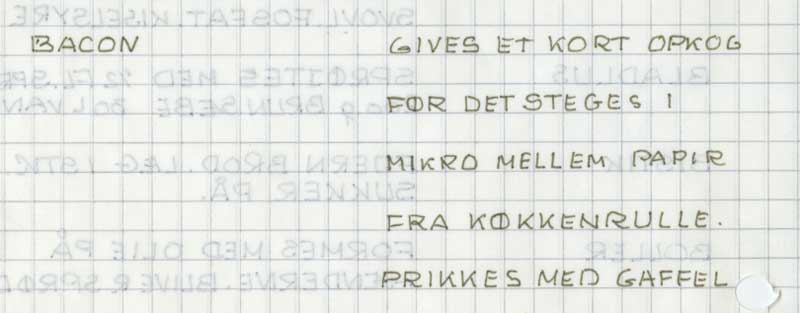 BACON GIVES ET KORT OPKOG
FØR DET STEGES I
MIKRO MELLEM PAPIR
FRA KØKKENRULLE.
PRIKKES MED GAFFEL